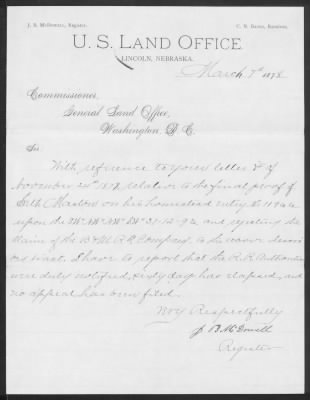 J. B. McDowell, Register.
C. N. Baird, Receiver.
U. S. Land Office,
Lincoln, Nebraska.
March 7th 1878
Commissioner,
General Land Office,
Washington, D. C.
Sir
With reference to your letter of
November 24th 1877 relative to the final proof of
on his homestead entry No
upon the and rejecting the
claim of the B & M R. R. Company to the
I have to report that the R. R. Authorities
were duly notified, sixty days has elapsed, and
no appeal has been filed.
Very Respectfully
J B McDowell
Register